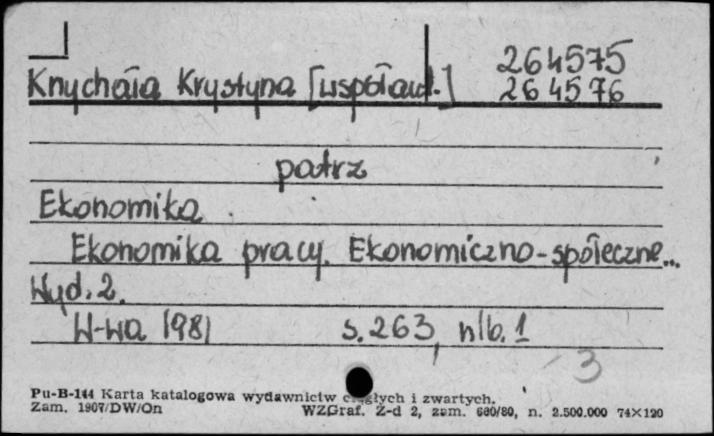 264575
Knychała Krystyna [współaut.] 264576
patrz
Ekonomika
Ekonomika pracy. Ekonomiczno-społeczne...
Wyd. 2.
W-wa 1981 s. 263, nlb. 1
3
Pu-B-144 Karta katalogowa wydawnictw ciągłych i zwartych.
Zam. 1907/DW/On WZGraf. Z-d 2, zam. 680/80, n. 2.500.000 74×120